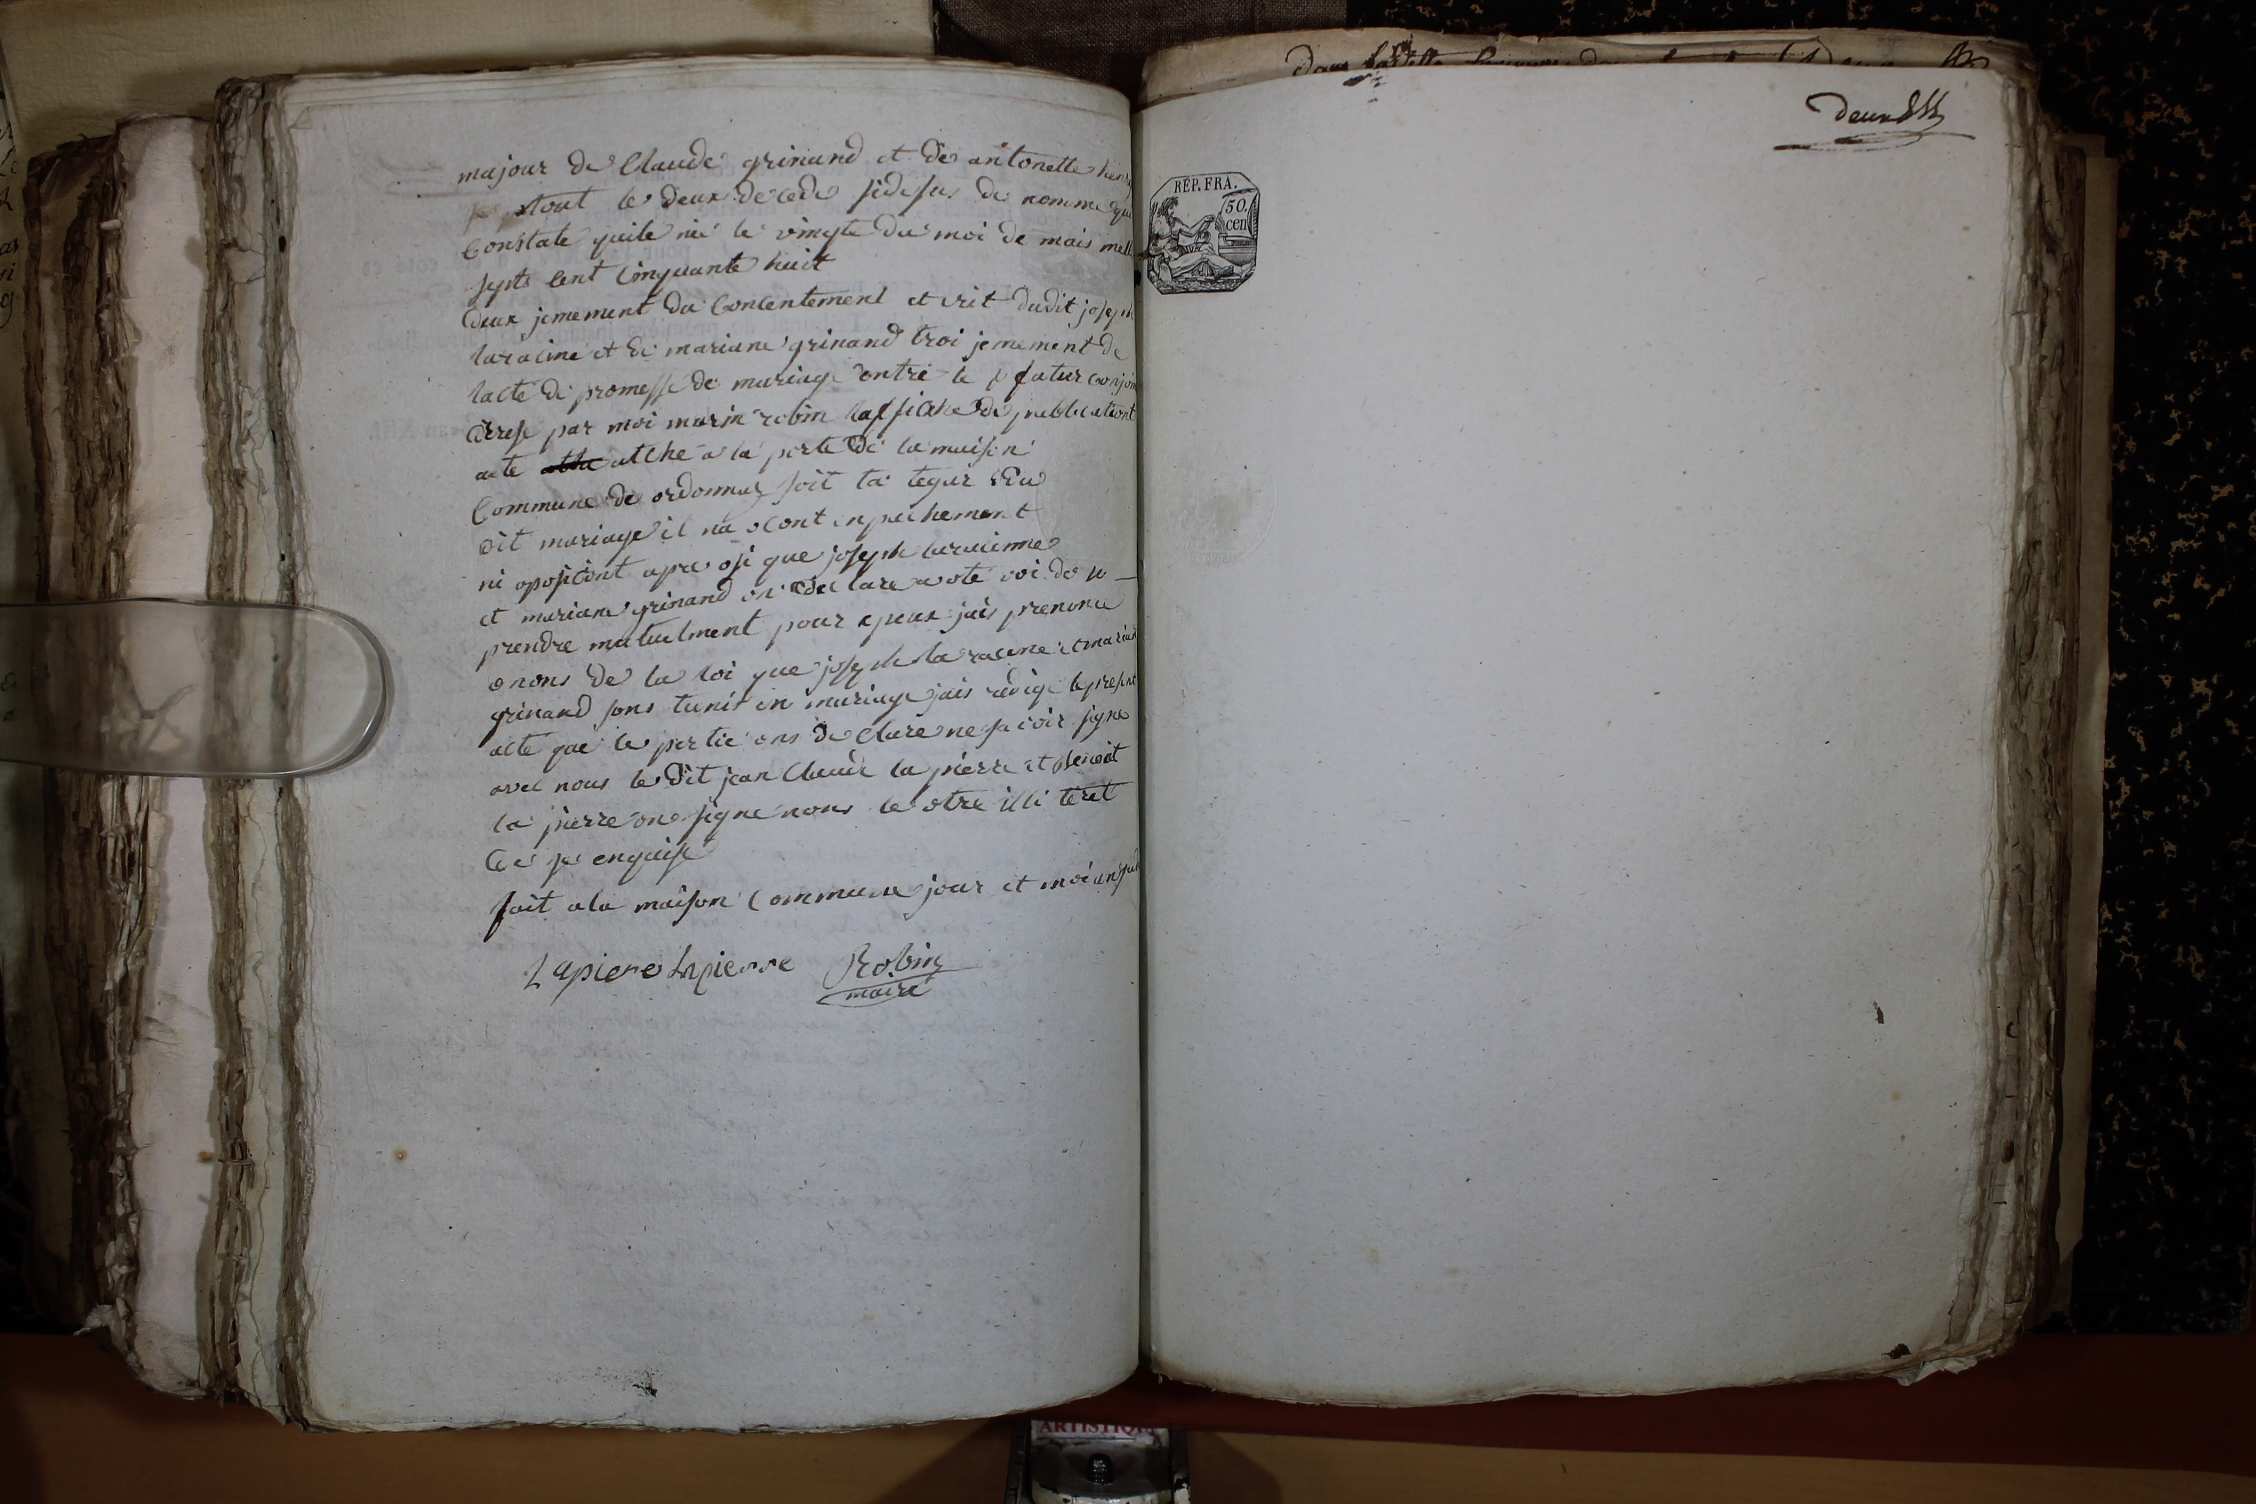 majour de Claude grinand et de antonette henry
tout le deux decede sidesus de nomme que
Constate quile né le vingte du moi de mais mell
septs cent Cinquante huit
deux jemement du Concentement et crit dudit joseph
laracine et de mariane grinand troi jemement de
lacte de promesse de mariage entre le futur conjoin
drese par moi marin robin lassiche de publicationt
acte atche a la porte de la maison
Commune de ordonner soit ta tegur du
dit mariage il na ocont enpechement
ni oposiciont apre osi que joseph laracinne
et mariane grinand on declare a ote voi de se
prendre mutuelment pour epeux jais prenonce
onons de la loi que joseph la racine et mariane
grinand sons tunit en mariage jais redige le present
acte que le partie ons declare ne savoir signe
avec nous le dit jean Claude la pierre et Benoit
la pierre on signe nons le otre illi teret
de se enquise
fait a la maison Commune jour et moi an que
Lapiere Lapierre Robin
maire
deux
RÉP. FRA.
50.
cen
ARTISTIQUE